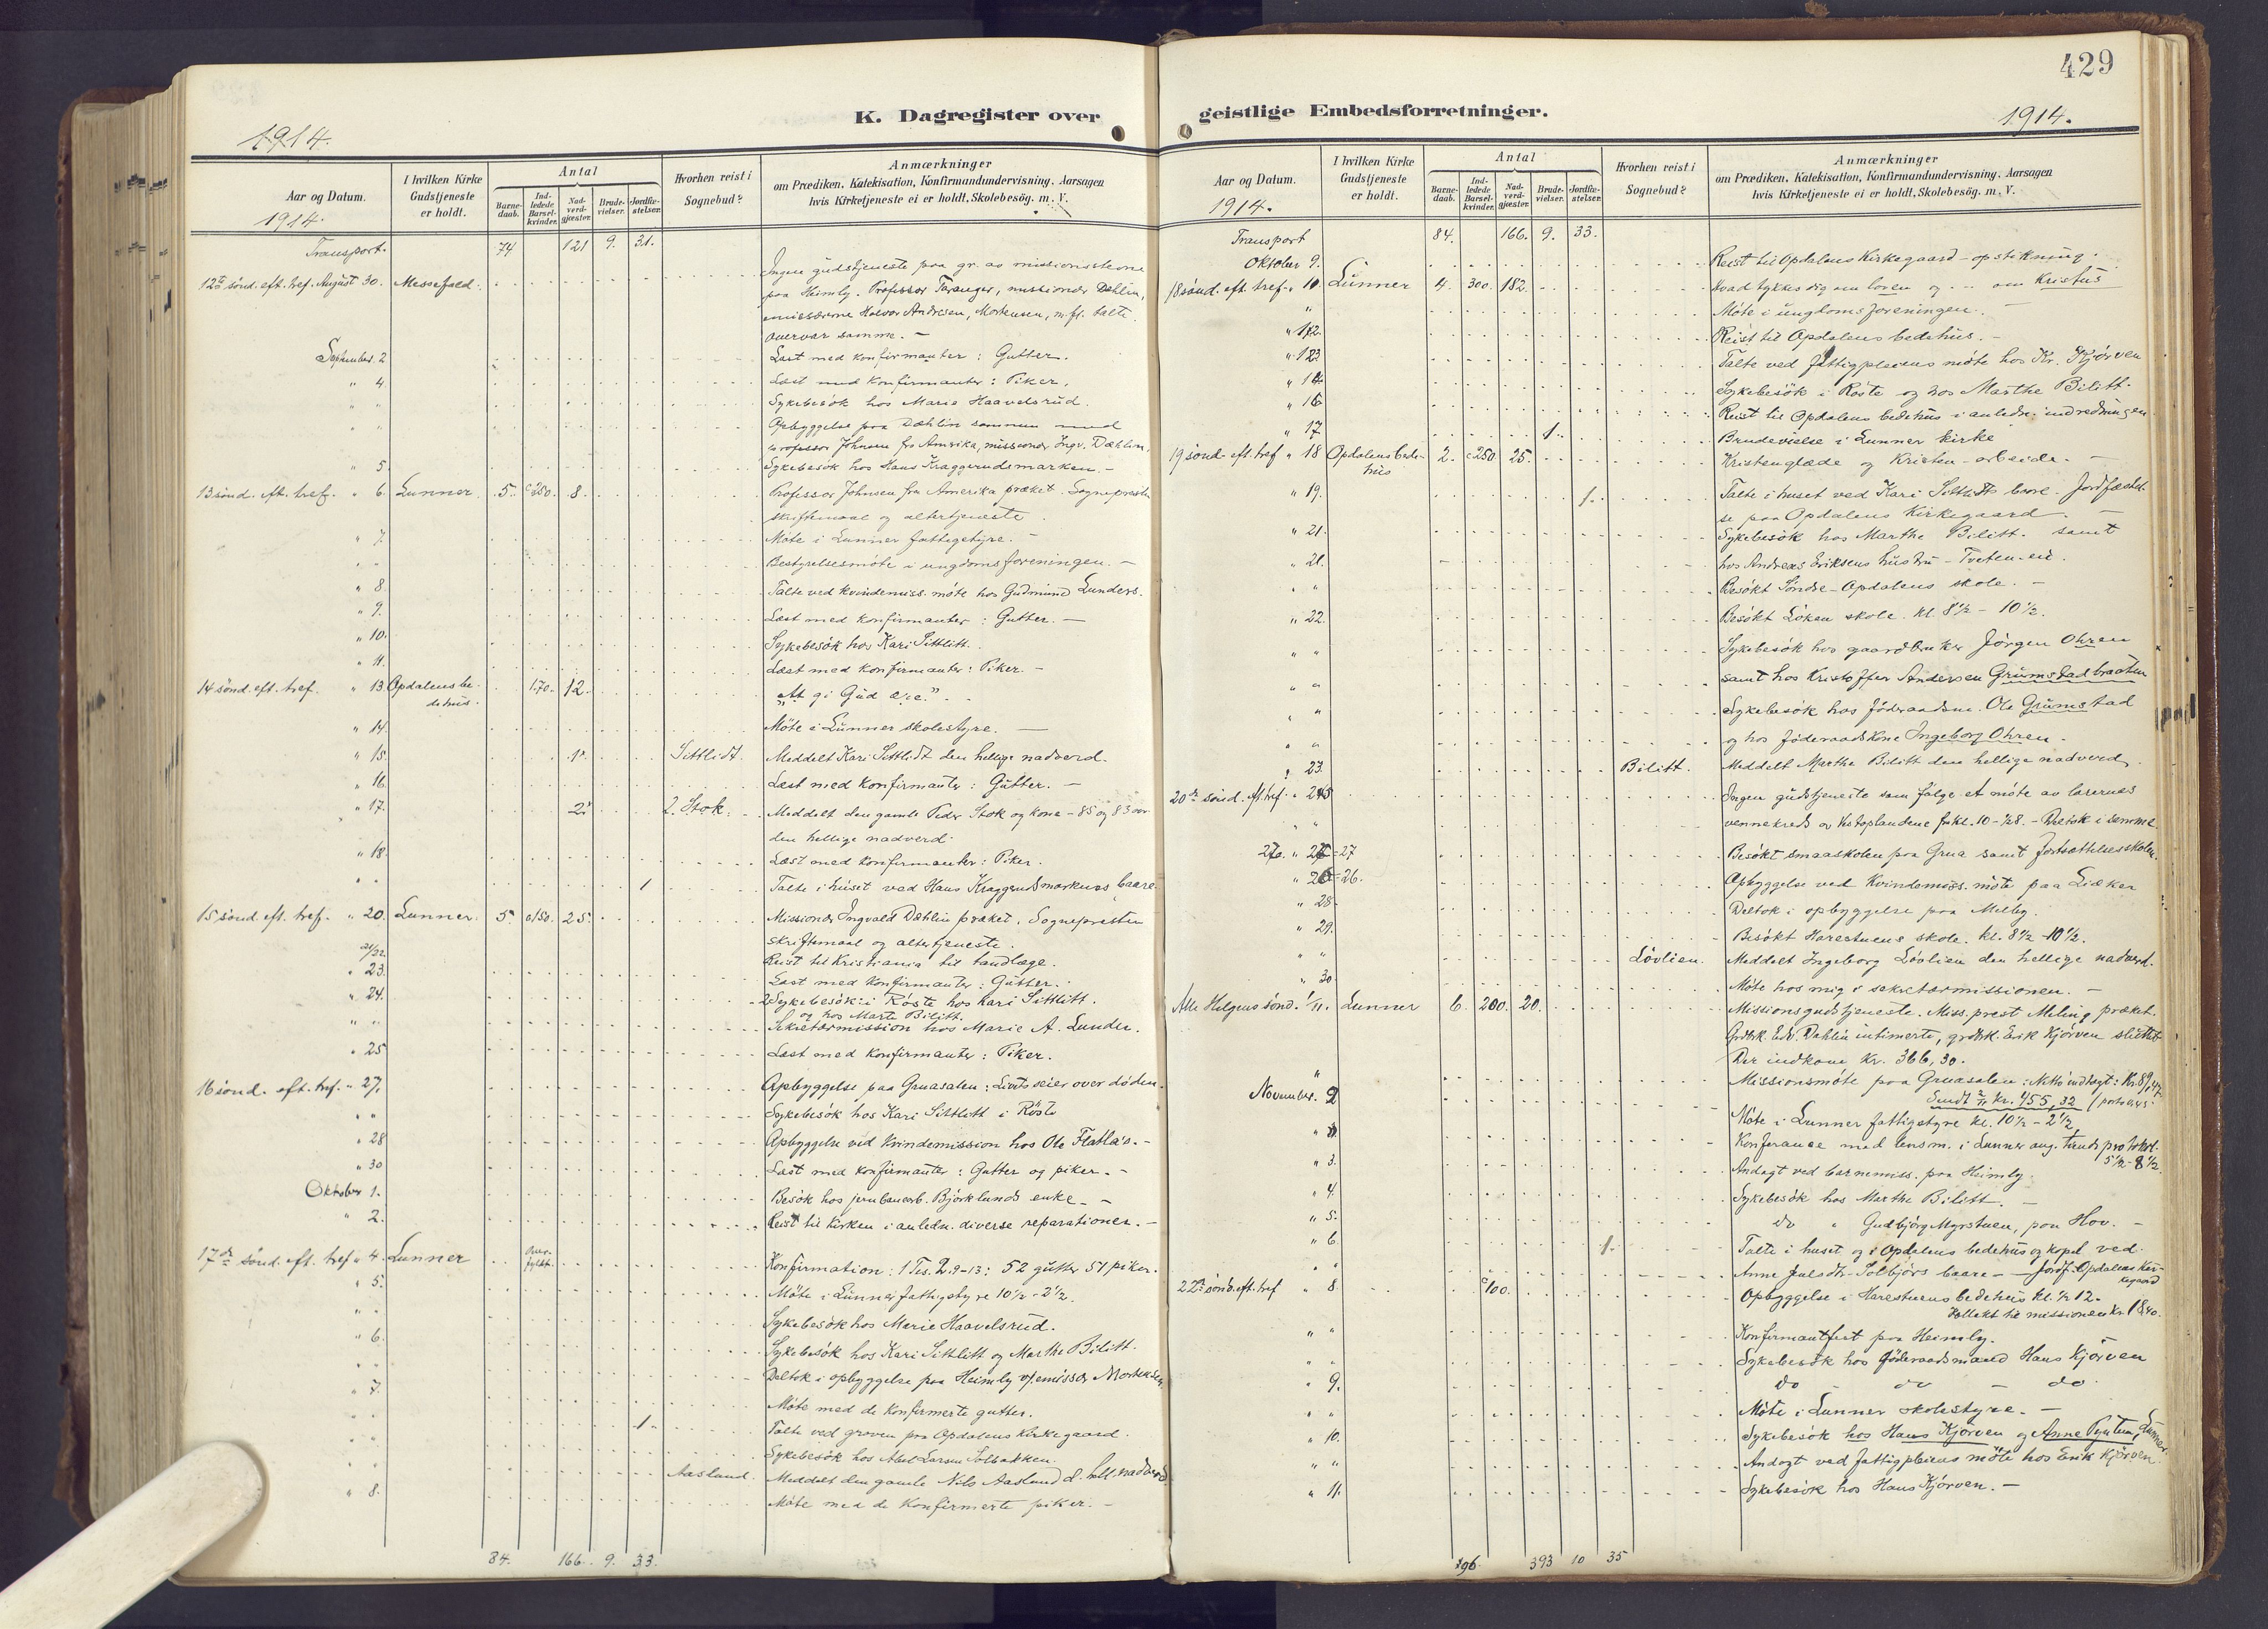 K. Dagregister over
1914.
Aar og Datum.
1914.
I hvilken Kirke Gudstjeneste er holdt.
Antal
Barnedaab. Indledede Barselkvinder. Nadverdgjæster. Brudevielser. Jordfæstelser.
Hvorhen reist i Sognebud?
Anmærkninger
om Prædiken, Katekisation, Konfirmandundervisning, Aarsagen
hvis Kirketjeneste ei er holdt, Skolebesög. m. V.
Transport. 74 121 9. 31.
12te sönd. eft. tref. August 30. Messefald. Ingen gudstjeneste paa gr. av missionsstevne
paa Heimly. Professor Taranger, missionær Dæhlin,
emissærerne Halvor Andresen, Mortensen, m. fl. talte.
Overvar samme. –
September 2 Læst med konfirmanter: Gutter.
" 4 Læst med konfirmanter: Piker.
" " Sykebesök hos Marie Haavelsrud.
" " Opbyggelse paa Dæhlin sammen med
professor Johnsen fra Amerika, missionær Ingv. Dæhlin.
" 5. Sykebesök hos Hans Kraggerudsmarken. –
13 sönd. eft. tref. " 6. Lunner. 5. c. 250. 8. Professor Johnsen fra Amerika præket. Sognepresten
skriftemaal og altertjeneste.
" 7. Möte i Lunner fattigstyre. –
" " Bestyrelsesmöte i ungdomsforeningen. –
" 8 Talte ved kvindemiss. möte hos Gudmund Lunders.
" 9. Læst med konfirmanter: Gutter. –
" 10. Sykebesök hos Kari Sittlitt.
" 11. Læst med konfirmanter: Piker. –
14 sönd. eft. tref. " 13. Opdalens bedehus. 170. 12. „At gi Gud ære." –
" 14. Möte i Lunner skolestyre. –
" 15. 1. Sittlidt. Meddelt Kari Sittlidt den hellige nadverd.
" 16. Læst med konfirmanter: Gutter. –
" 17. 2. 2. Stok. Meddelt den gamle Peder Stok og kone – 85 og 83 aar
den hellige nadverd.
" 18. Læst med konfirmanter: Piker.
" " 1 Talte i huset ved Hans Kraggerudsmarkens baare.
15 sönd. eft. tref. " 20. Lunner. 5. c. 150. 25. Missionær Ingvald Dæhlin præket. Sognepresten
skriftemaal og altertjeneste.
21/22. Reist til Kristiania til tandlæge.
" 23. Læst med konfirmanter: Gutter.
" 24. 2 Sykebesök: i Röste hos Kari Sittlitt.
og hos Marte Bilitt.
" " Sekretærmission hos Marie A. Lunder.
" 25 Læst med konfirmanter: Piker.
16 sönd. eft. tref. " 27. Opbyggelse paa Gruasalen: Livets seier over döden.
" " Sykebesök hos Kari Sittlitt i Röste
" 28 Opbyggelse ved kvindemission hos Ole Flatla's. –
" 30 Læst med konfirmanter: Gutter og piker. –
Oktober 1. Besök hos jernbanearb. Björklunds enke. –
" 2. Reist til kirken i anledn. diverse reparationer. –
17de sönd. eft. tref. " 4. Lunner Overfyldt. Konfirmation: 1 Tes. 2. 9–13: 52 gutter 51 piker.
" 5. Möte i Lunner fattigstyre 10½ – 2½.
" " Sykebesök hos Marie Haavelsrud.
" 6. Sykebesök hos Kari Sittlitt og Marthe Bilitt.
" " Deltok i opbyggelse paa Heimly v/ emissær Mortensen.
" 7. Möte med de konfirmerte gutter.
" " 1 Talte ved graven paa Opdalens Kirkegaard.
" " Sykebesök hos Abel Larsen Solbakken.
" " Aasland. Meddelt den gamle Nils Aasland d. hell. nadverd.
" 8. Möte med de konfirmerte piker. –
84. 166. 9. 33.
429
geistlige Embedsforretninger.
1914.
Aar og Datum.
1914.
I hvilken Kirke Gudstjeneste er holdt.
Antal
Barnedaab. Indledede Barselkvinder. Nadverdgjæster. Brudevielser. Jordfæstelser.
Hvorhen reist i Sognebud?
Anmærkninger
om Prædiken, Katekisation, Konfirmandundervisning, Aarsagen
hvis Kirketjeneste ei er holdt, Skolebesög. m. V.
Transport 84. 166. 9. 33.
Oktober 9. Reist til Opdalens Kirkegaard – opstikning.
18 sönd. eft. tref. " 10. Lunner 4. 300. 182. Hvad tykkes dig om loven og ... om Kristus
" Möte i ungdomsforeningen. –
" 12. Reist til Opdalens bedehus. –
" 13. Talte ved fattigpleiens möte hos Kr. Kjörven
" 14. Sykebesök i Röste og hos Marthe Bilitt.
" 16 Reist til Opdalens bedehus i anledn. indredningen
" 17 1. Brudevielse i Lunner kirke
19 sönd. eft. tref. " 18 Opdalens bedehus 2. c. 250. 25. Kristenglæde og Kristen-arbeide. –
" 19. 1. Talte i huset ved Kari Sittlidts baare. Jordfæstelse
paa Opdalens Kirkegaard. –
" 21. Sykebesök hos Marthe Bilitt. samt
" 21. hos Andreas Eriksens hustru – Tveten-eie.
" " Besökt Söndre-Opdalens skole. –
" 22. Besökt Löken skole kl. 8½ – 10½.
" " Sykebesök hos gaardbruker Jörgen Ohren
" " samt hos Kristoffer Andersen Grumstadbraaten
" " Sykebesök hos föderaadsm. Ole Grumstad
" " og hos föderaadskone Ingeborg Ohren.
" 23. Bilitt. Meddelt Marthe Bilitt den hellige nadverd.
20de sönd. eft. tref. " 25 Ingen gudstjeneste som fölge et möte av lærernes
" " vennekreds av Vestoplandene fra kl. 10 – ½8. – Deltok i samme.
" 27 Besökt smaaskolen paa Grua samt fortsættelsesskolen.
" 26. Opbyggelse ved Kvindemiss. möte paa Liæker
" 28. Deltok i opbyggelse paa Melby.
" 29. Besökt Harestuens skole. kl. 8½ – 10½.
" " Lövlien. Meddelt Ingeborg Lövlien den hellige nadverd.
" 30 Möte hos mig i sekretærmissionen. –
Alle Helgens sönd. 1/11. Lunner 6. 200. 20. Missionsgudstjeneste. Miss. prest Meling præket.
Grdbr. Edv. Dæhlin intimerte, grdbr. Erik Kjörven sluttet.
Der indkom kr. 366,30.
" Missionsmöte paa Gruasalen: Netto indtægt: Kr. 89,47
Sendt 2/11 kr. 455,32 (porto 0,45.
November. 2 Möte i Lunner fattigstyre kl. 10½ – 2½
" Konferanse med lensm. i Lunner ang. protokol.
5½ – 8½.
" 3. Andagt ved barnemiss. paa Heimly.
" 4. Sykebesök hos Marthe Bilitt. –
" 5. do " Gudbjörg Myrstuen, paa Hov. –
" 6. 1. Talte i huset og i Opdalens bedehus og kapel ved
" " Anne Julsdtr. Solbjörs baare – Jordf. Opdalens Kirkegaard
22de sönd. eft. tref. " 8. c. 100. Opbyggelse i Harestuens bedehus kl. ½ 12.
Kollekt til missionen kr. 18,40.
" " Konfirmantfest paa Heimly.
" " Sykebesök hos Föderaadsmand Hans Kjörven
" 9. do do – do
" " Möte i Lunner skolestyre. –
" 10. Sykebesök hos Hans Kjörven og Anne Pynten, Lunner.
" " Andagt ved fattigpleiens möte hos Erik Kjörven
" 11. Sykebesök hos Hans Kjörven. –
96. 393 10 35